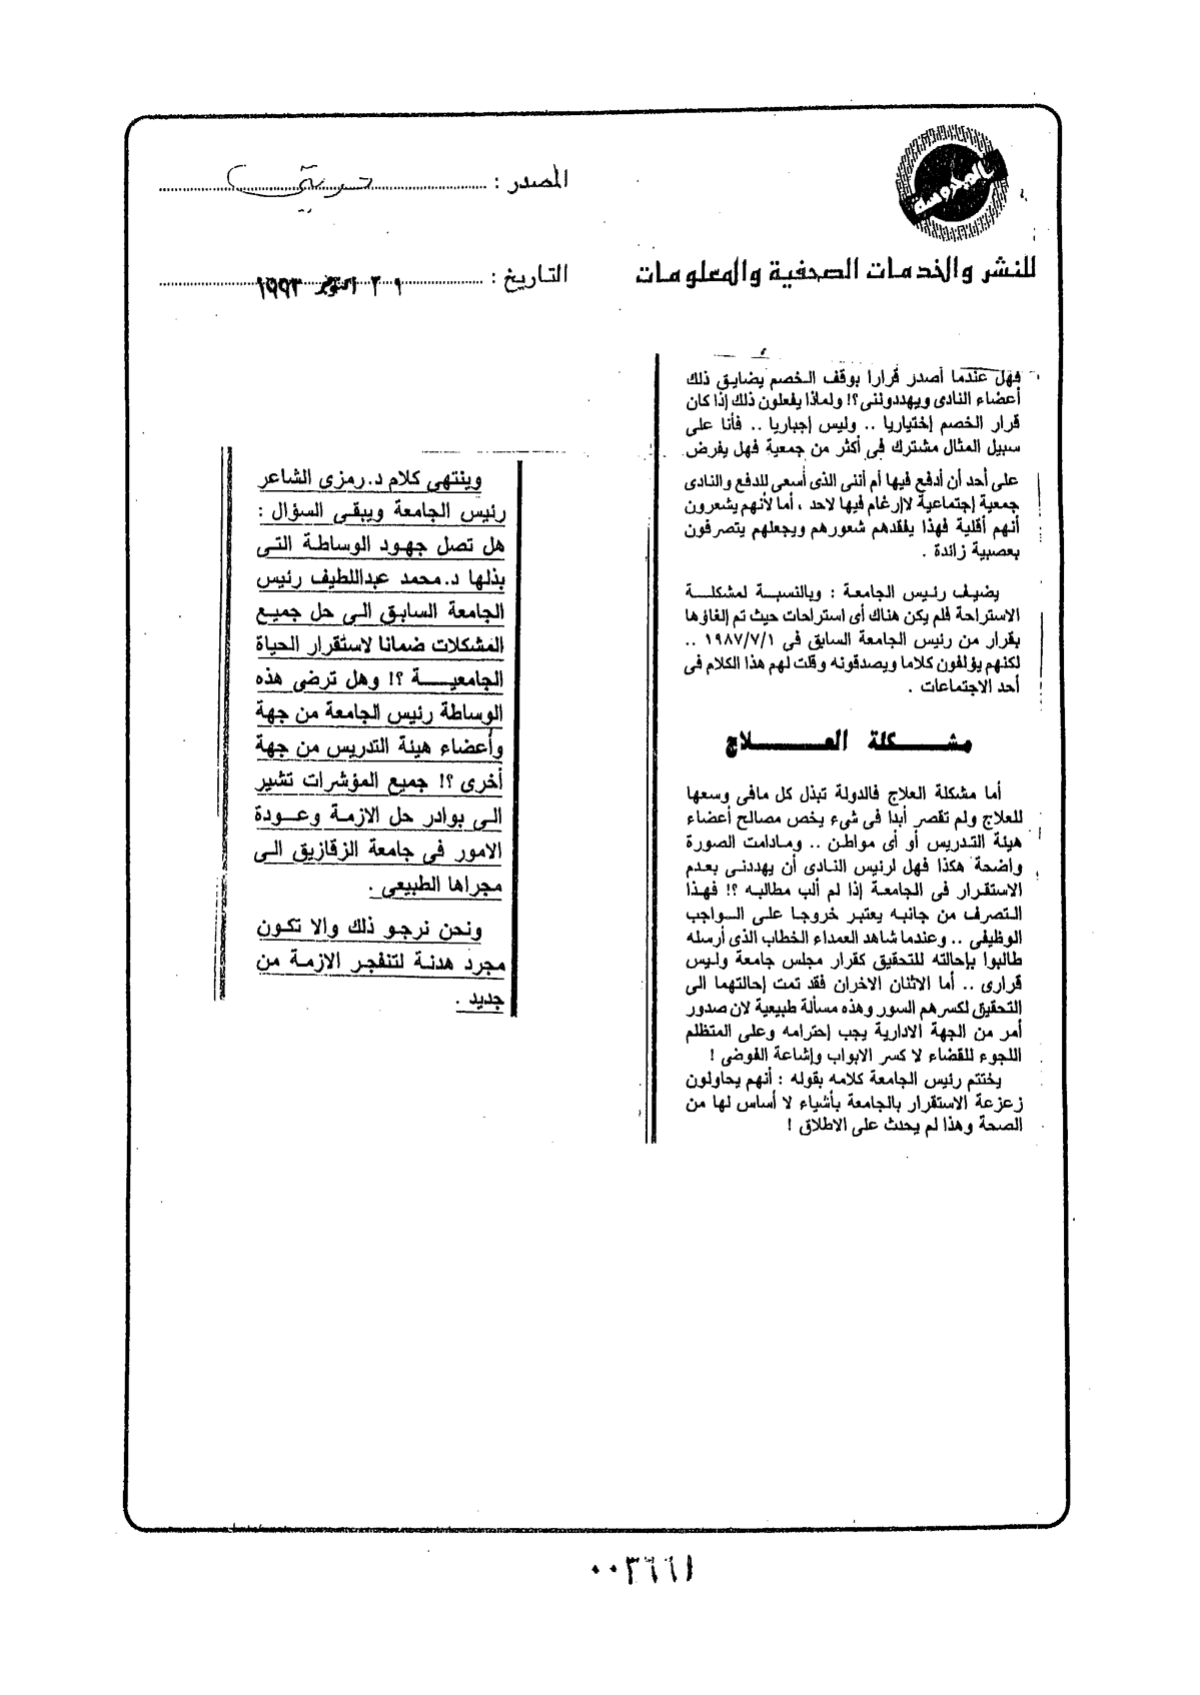 المصدر : حريتي
التاريخ : ٣١ اكتوبر ١٩٩٣
للنشر والخدمات الصحفية والمعلومات
فهل عندما أصدر قرارا بوقف الخصم يضايق ذلك
أعضاء النادى ويهددوننى؟! ولماذا يفعلون ذلك إذا كان
قرار الخصم إختياريا .. وليس إجباريا .. فأنا على
سبيل المثال مشترك فى أكثر من جمعية فهل يفرض
على أحد أن أدفع فيها أم أننى الذى أسعى للدفع والنادى
جمعية إجتماعية لاإرغام فيها لاحد ، أما لأنهم يشعرون
أنهم أقلية فهذا يفقدهم شعورهم ويجعلهم يتصرفون
بعصبية زائدة .
يضيف رئيس الجامعة : وبالنسبة لمشكلـــة
الاستراحة فلم يكن هناك أى استراحات حيث تم إلغاؤها
بقرار من رئيس الجامعة السابق فى ١٩٨٧/٧/١ ..
لكنهم يؤلفون كلاما ويصدقونه وقلت لهم هذا الكلام فى
أحد الاجتماعات .
مشــــكلة العـــــــلاج
أما مشكلة العلاج فالدولة تبذل كل مافى وسعها
للعلاج ولم تقصر أبدا فى شىء يخص مصالح أعضاء
هيئة التدريس أو أى مواطن .. ومادامت الصورة
واضحة هكذا فهل لرئيس النادى أن يهددنى بعدم
الاستقرار فى الجامعة إذا لم ألب مطالبه ؟! فهذا
التصرف من جانبه يعتبر خروجا على الـواجب
الوظيفى .. وعندما شاهد العمداء الخطاب الذى أرسله
طالبوا بإحالته للتحقيق كقرار مجلس جامعة وليس
قرارى .. أما الاثنان الاخران فقد تمت إحالتهما الى
التحقيق لكسرهم السور وهذه مسألة طبيعية لان صدور
أمر من الجهة الادارية يجب إحترامه وعلى المتظلم
اللجوء للقضاء لا كسر الابواب وإشاعة الفوضى !
يختتم رئيس الجامعة كلامه بقوله : أنهم يحاولون
زعزعة الاستقرار بالجامعة بأشياء لا أساس لها من
الصحة وهذا لم يحدث على الاطلاق !
وينتهى كلام د.رمزى الشاعر
رئيس الجامعة ويبقى السؤال :
هل تصل جهود الوساطة التى
بذلها د.محمد عبداللطيف رئيس
الجامعة السابق الى حل جميع
المشكلات ضمانا لاستقرار الحياة
الجامعيــــة ؟! وهل ترضى هذه
الوساطة رئيس الجامعة من جهة
وأعضاء هيئة التدريس من جهة
أخرى ؟! جميع المؤشرات تشير
الى بوادر حل الازمة وعــودة
الامور فى جامعة الزقازيق الى
مجراها الطبيعى .
ونحن نرجو ذلك والا تكون
مجرد هدنة لتنفجر الازمـة من
جديد .
٠٠٣٦٦١